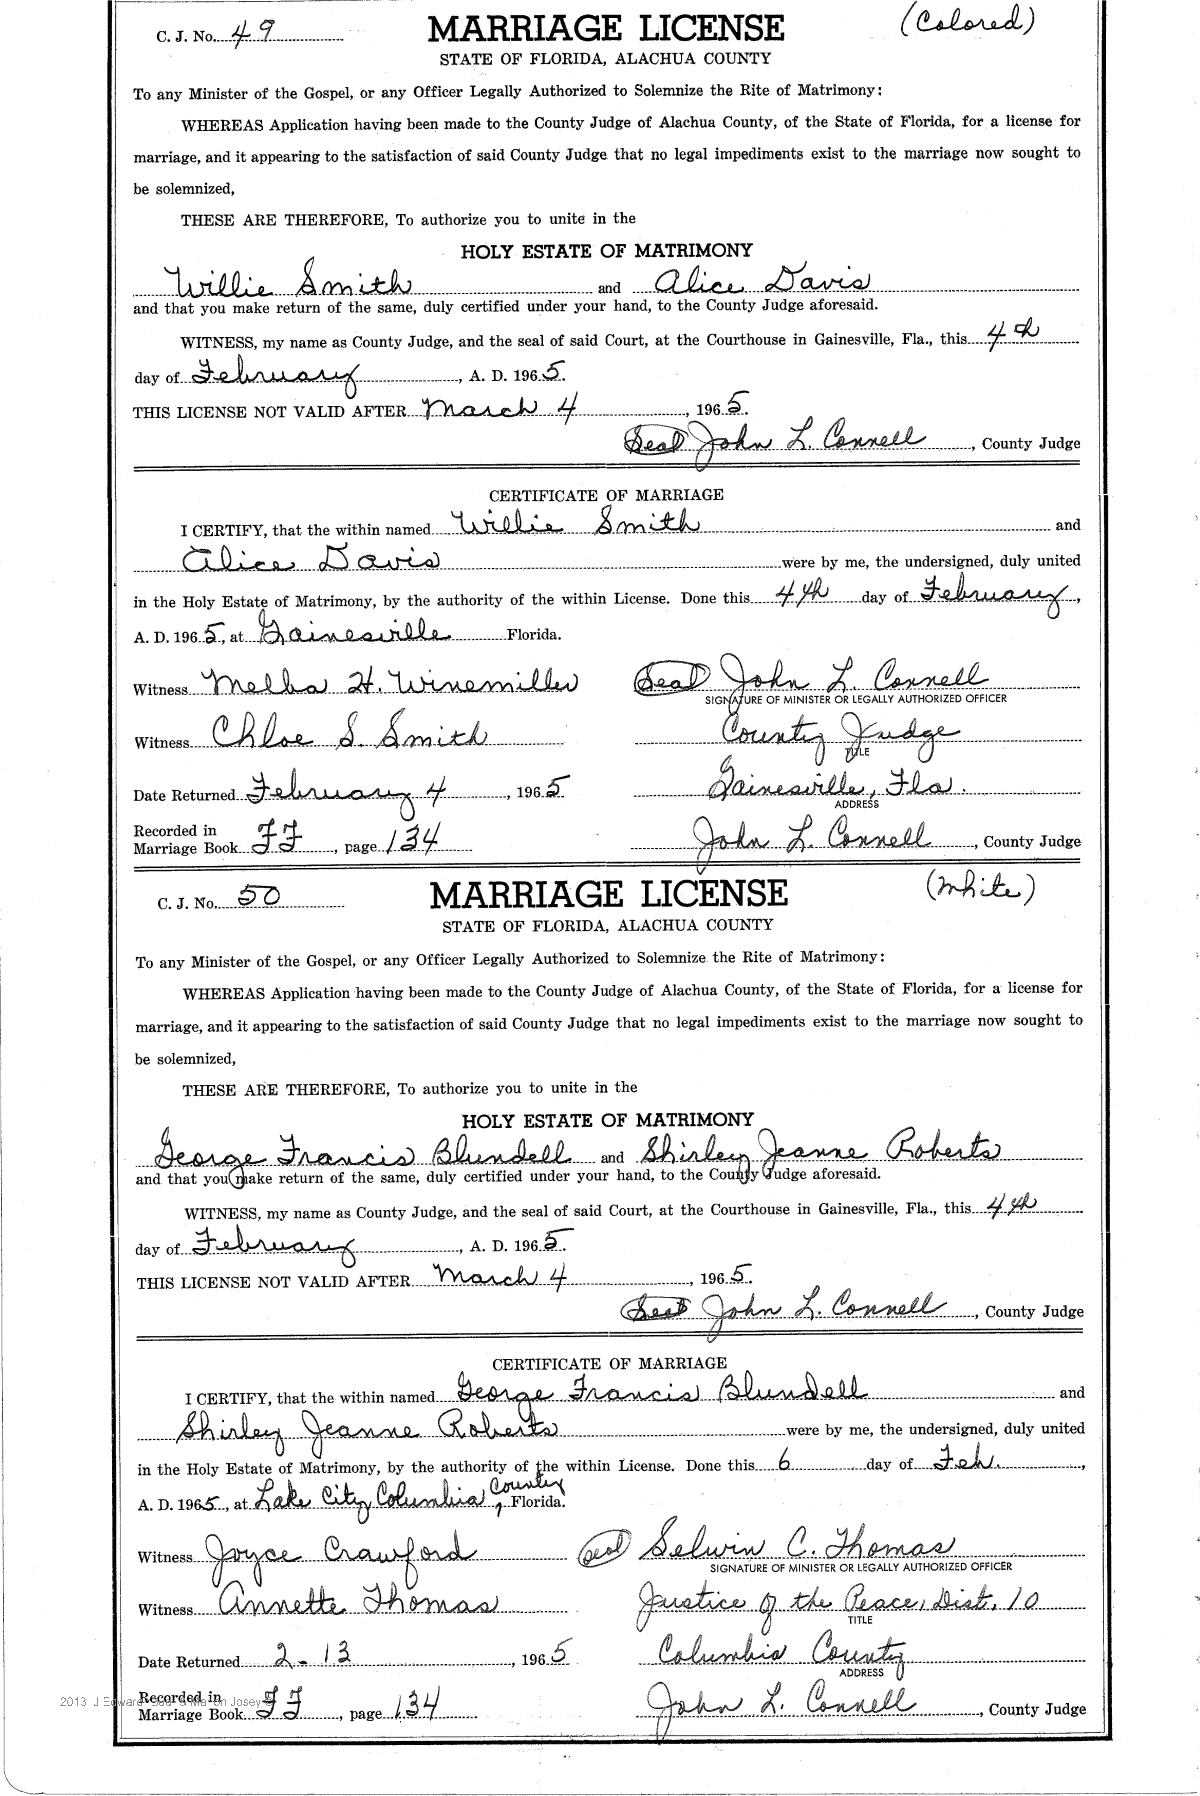 C. J. No. 49 MARRIAGE LICENSE (Colored)
STATE OF FLORIDA, ALACHUA COUNTY
To any Minister of the Gospel, or any Officer Legally Authorized to Solemnize the Rite of Matrimony:
WHEREAS Application having been made to the County Judge of Alachua County, of the State of Florida, for a license for
marriage, and it appearing to the satisfaction of said County Judge that no legal impediments exist to the marriage now sought to
be solemnized,
THESE ARE THEREFORE, To authorize you to unite in the
HOLY ESTATE OF MATRIMONY
Willie Smith and Alice Davis
and that you make return of the same, duly certified under your hand, to the County Judge aforesaid.
WITNESS, my name as County Judge, and the seal of said Court, at the Courthouse in Gainesville, Fla., this 4th
day of February, A. D. 1965.
THIS LICENSE NOT VALID AFTER March 4, 1965.
Seal John L. Connell, County Judge
CERTIFICATE OF MARRIAGE
I CERTIFY, that the within named Willie Smith and
Alice Davis were by me, the undersigned, duly united
in the Holy Estate of Matrimony, by the authority of the within License. Done this 4th day of February,
A. D. 1965, at Gainesville Florida.
Witness Melba H. Winemiller Seal John L. Connell
SIGNATURE OF MINISTER OR LEGALLY AUTHORIZED OFFICER
Witness Chloe S. Smith County Judge
TITLE
Date Returned February 4, 1965 Gainesville, Fla.
ADDRESS
Recorded in
Marriage Book FF, page 134 John L. Connell, County Judge
C. J. No. 50 MARRIAGE LICENSE (White)
STATE OF FLORIDA, ALACHUA COUNTY
To any Minister of the Gospel, or any Officer Legally Authorized to Solemnize the Rite of Matrimony:
WHEREAS Application having been made to the County Judge of Alachua County, of the State of Florida, for a license for
marriage, and it appearing to the satisfaction of said County Judge that no legal impediments exist to the marriage now sought to
be solemnized,
THESE ARE THEREFORE, To authorize you to unite in the
HOLY ESTATE OF MATRIMONY
George Francis Blundell and Shirley Jeanne Roberts
and that you make return of the same, duly certified under your hand, to the County Judge aforesaid.
WITNESS, my name as County Judge, and the seal of said Court, at the Courthouse in Gainesville, Fla., this 4th
day of February, A. D. 1965.
THIS LICENSE NOT VALID AFTER March 4, 1965.
Seal John L. Connell, County Judge
CERTIFICATE OF MARRIAGE
I CERTIFY, that the within named George Francis Blundell and
Shirley Jeanne Roberts were by me, the undersigned, duly united
in the Holy Estate of Matrimony, by the authority of the within License. Done this 6 day of Feb.,
A. D. 1965, at Lake City Columbia County, Florida.
Witness Joyce Crawford Seal Selwin C. Thomas
SIGNATURE OF MINISTER OR LEGALLY AUTHORIZED OFFICER
Witness Annette Thomas Justice of the Peace, Dist. 10
TITLE
Date Returned 2-13, 1965 Columbia County
ADDRESS
2013 J Edward Josey
Recorded in
Marriage Book FF, page 134 John L. Connell, County Judge